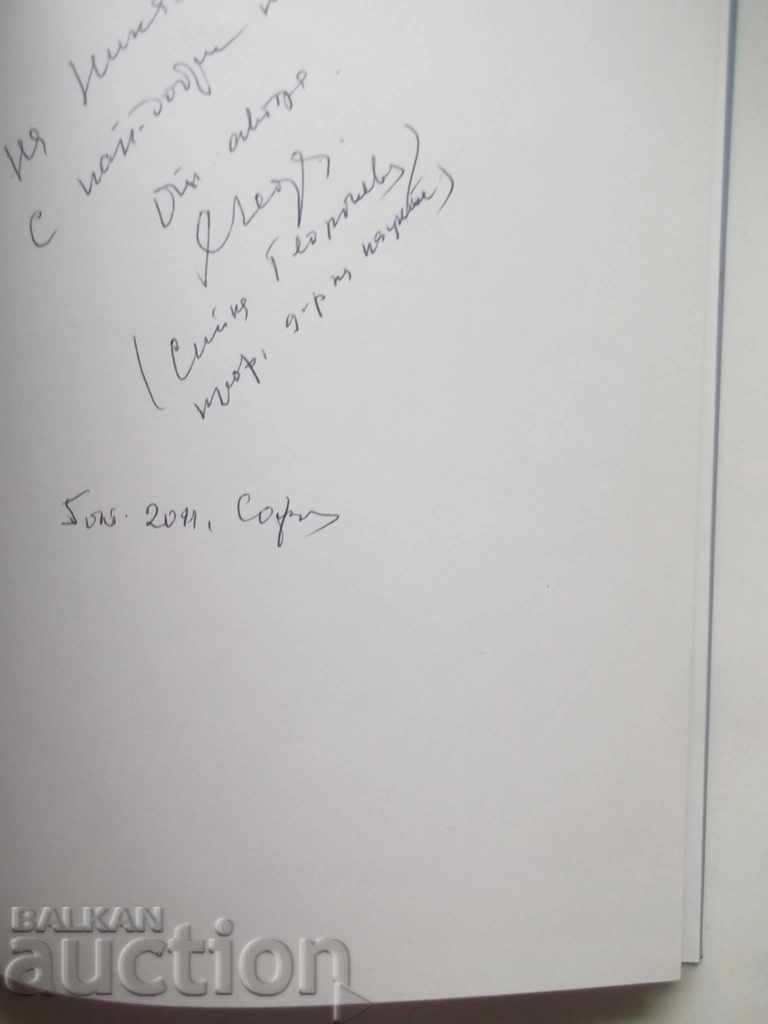 на Никя
с най-добри
от автора.
(Сийка Георгиева)
проф. д-р на науките)
5 окт. 2011, София
BALKAN
auction